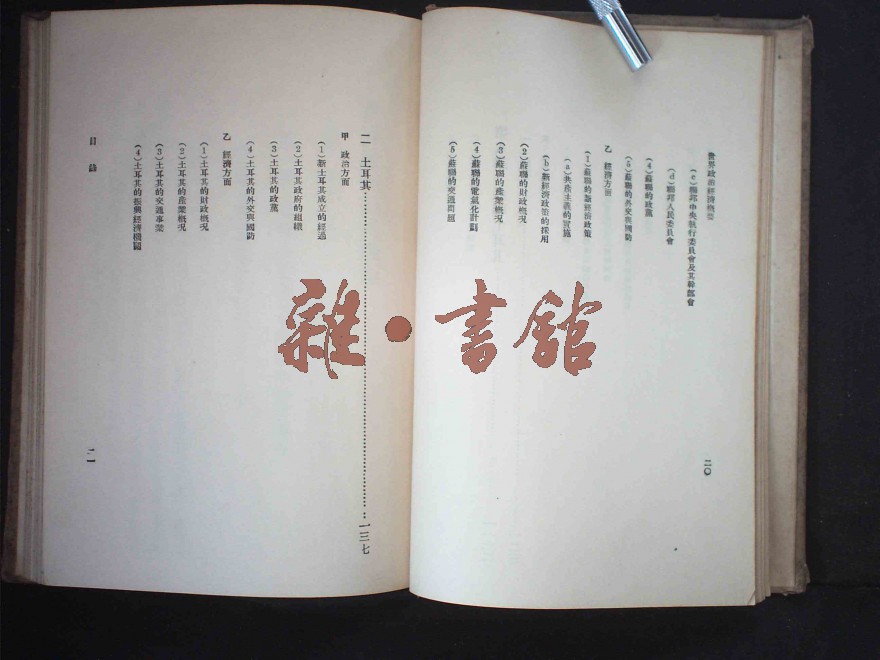 世界政治經濟概要
(c)聯邦中央執行委員會及其幹部會
(d)聯邦人民委員會
(4)蘇聯的政黨
(5)蘇聯的外交與國防
乙 經濟方面
(1)蘇聯的新經濟政策
(a)共產主義的實施
(b)新經濟政策的採用
(2)蘇聯的財政概況
(3)蘇聯的產業概況
(4)蘇聯的電氣化計劃
(5)蘇聯的交通問題
二〇
二 土耳其……一三七
甲 政治方面
(1)新土耳其成立的經過
(2)土耳其政府的組織
(3)土耳其的政黨
(4)土耳其的外交與國防
乙 經濟方面
(1)土耳其的財政概況
(2)土耳其的產業概況
(3)土耳其的交通事業
(4)土耳其的振興經濟機關
目錄
二一
雜·書館